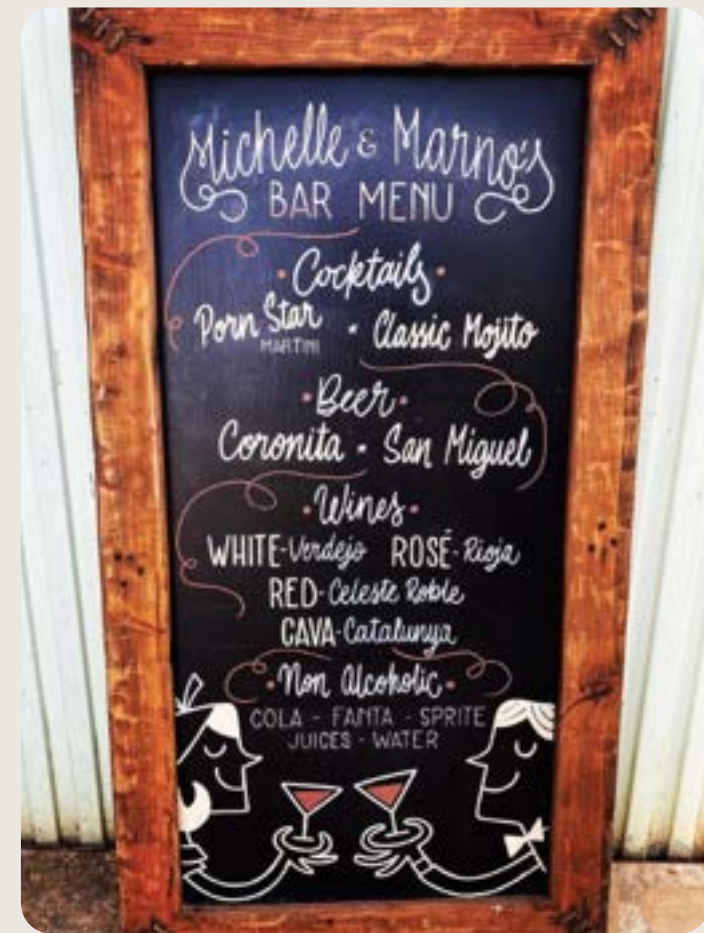 Michelle & Marno's
BAR MENU
• Cocktails •
Porn Star MARTINI • Classic Mojito
• Beer •
Coronita • San Miguel
• Wines •
WHITE - Verdejo ROSÉ - Rioja
RED - Celeste Roble
CAVA - Catalunya
• Non Alcoholic •
COLA - FANTA - SPRITE
JUICES - WATER